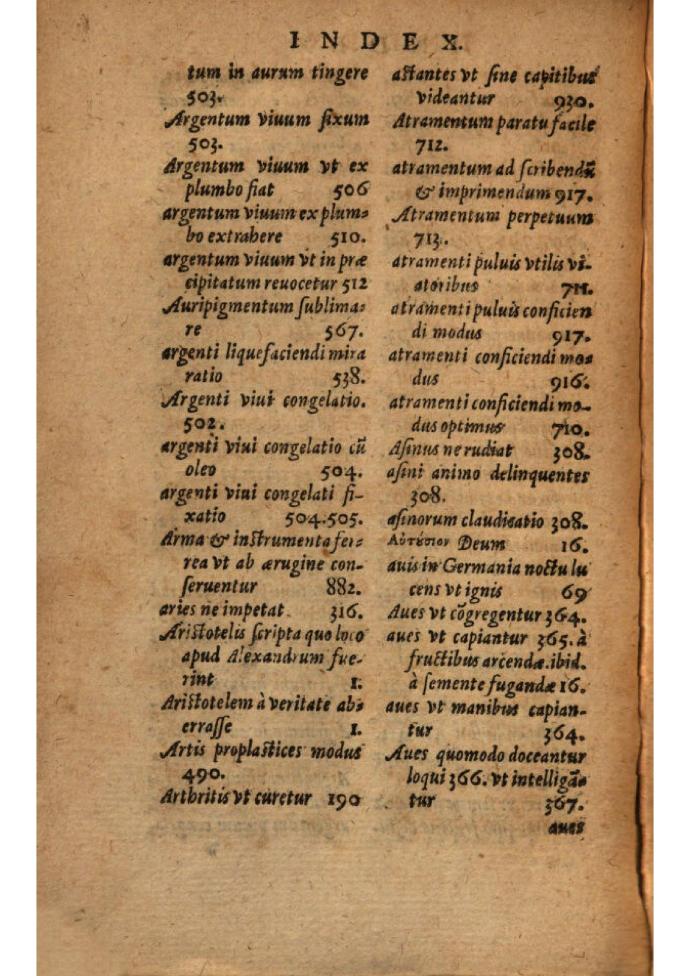 INDEX.
tum in aurum tingere
503.
Argentum viuum fixum
503.
Argentum viuum vt ex
plumbo fiat 506
argentum viuum ex plum-
bo extrahere 510.
argentum viuum vt in præ
cipitatum reuocetur 512
Auripigmentum ſublima-
re 567.
argenti liquefaciendi mira
ratio 538.
Argenti viui congelatio.
502.
argenti viui congelatio cū
oleo 504.
argenti viui congelati fi-
xatio 504.505.
Arma & inſtrumenta fer-
rea vt ab ærugine con-
ſeruentur 882.
aries ne impetat. 316.
Ariſtotelis ſcripta quo loco
apud Alexandrum fue-
rint 1.
Ariſtotelem à veritate ab-
erraſſe 1.
Artis proplaſtices modus
490.
Arthritis vt curetur 190
aſtantes vt ſine capitibus
videantur 930.
Atramentum paratu facile
712.
atramentum ad ſcribendū
& imprimendum 917.
Atramentum perpetuum
713.
atramenti puluis vtilis vi-
atoribus 711.
atramenti puluis conficien
di modus 917.
atramenti conficiendi mo-
dus 916.
atramenti conficiendi mo-
dus optimus 710.
Aſinus ne rudiat 308.
aſini animo delinquentes
308.
aſinorum claudicatio 308.
Deum 16.
auis in Germania noctu lu
cens vt ignis 69
Aues vt cōgregentur 364.
aues vt capiantur 365. à
fructibus arcendæ.ibid.
à ſemente fugandæ 16.
aues vt manibus capian-
tur 364.
Aues quomodo doceantur
loqui 366. vt intelligā-
tur 367.
aues